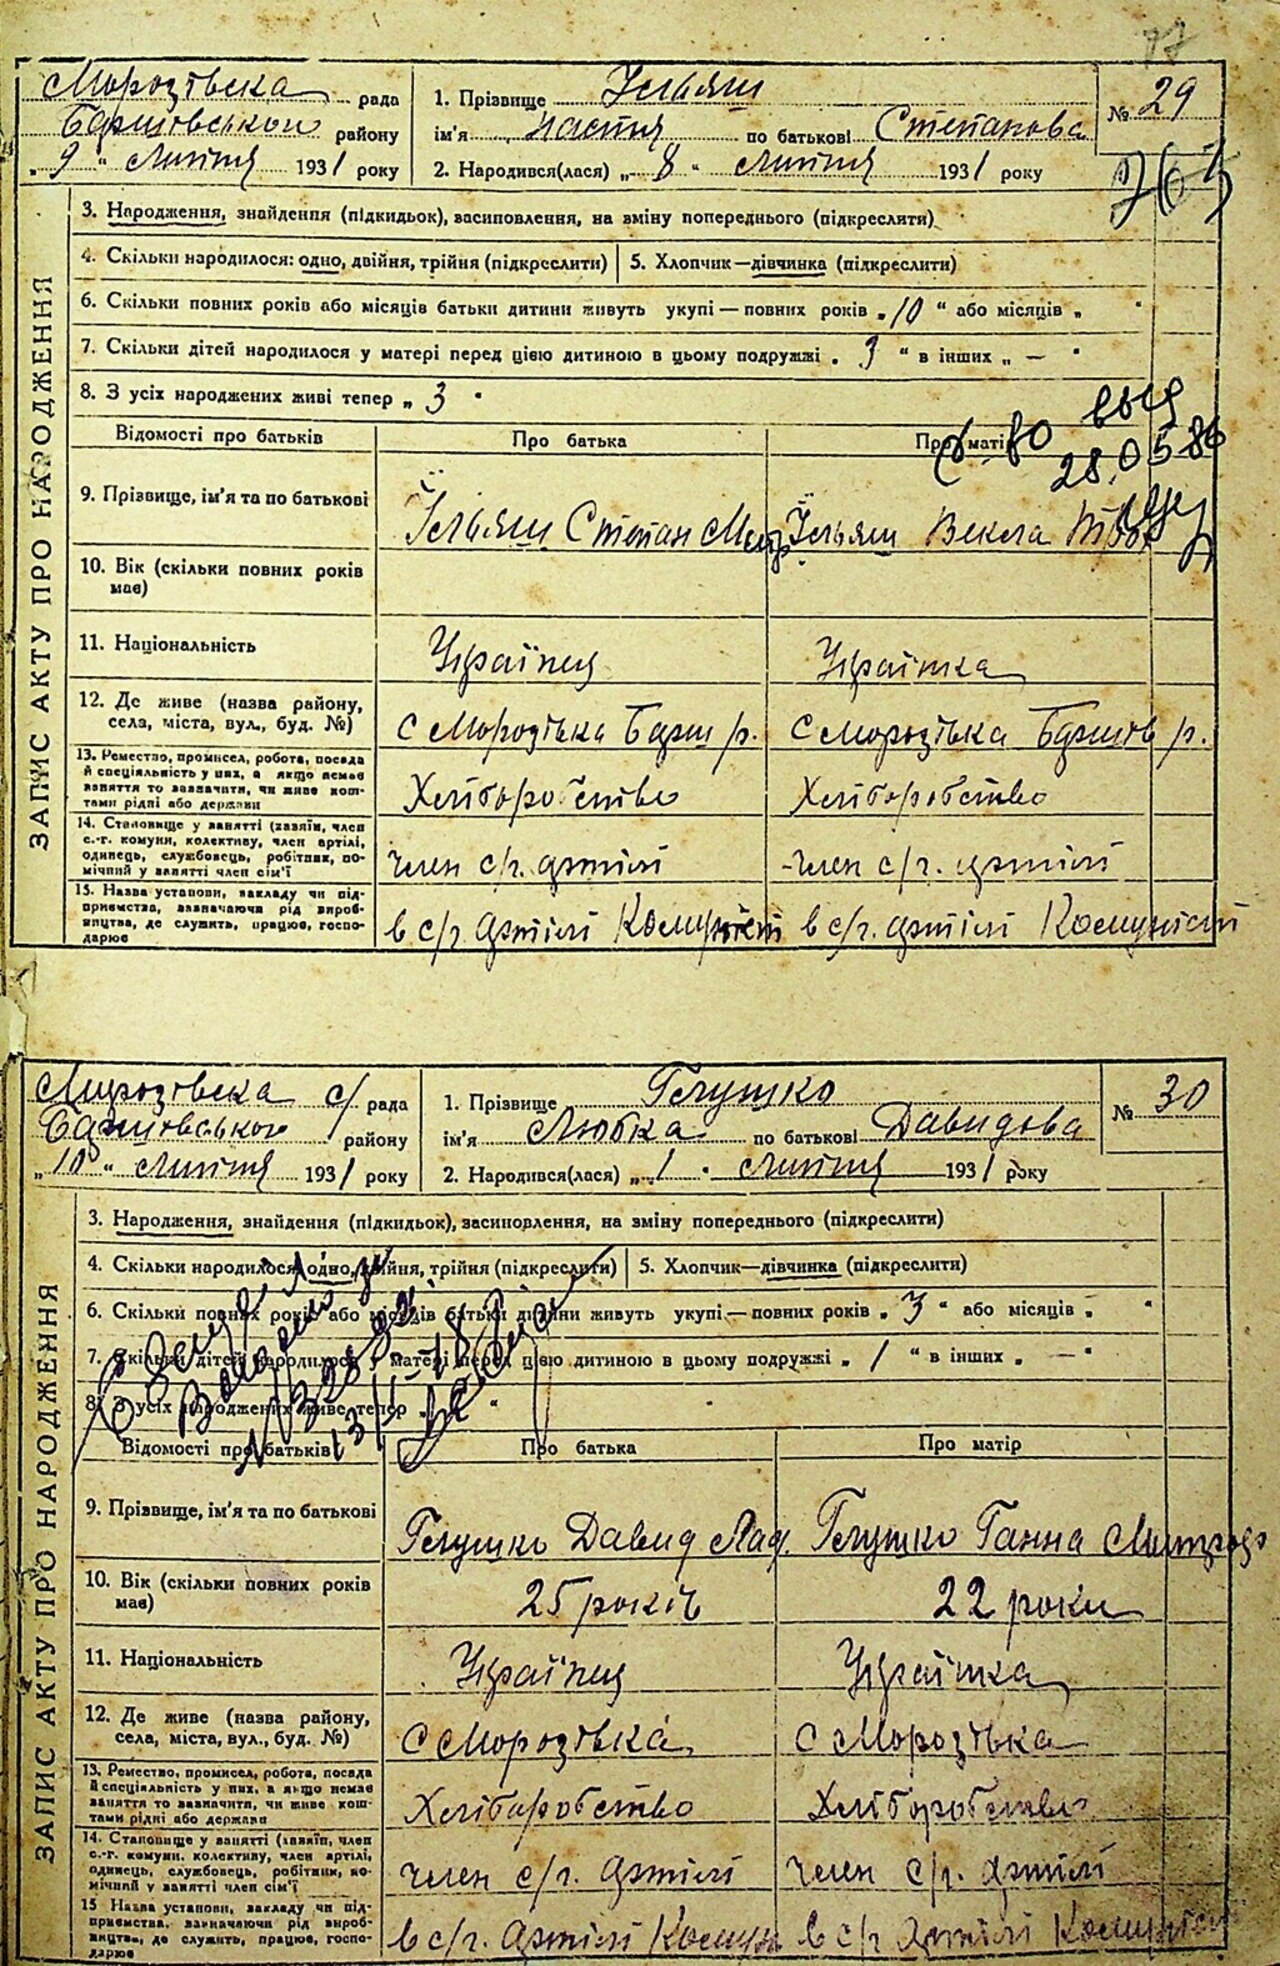 77
Морозівска рада
Баришівського району
„ 9 “ Липня 1931 року
1. Прізвище Ільяш
ім'я Настя по батькові Степанова
2. Народився(лася) „ 8 “ Липня 1931 року
№ 29
ЗАПИС АКТУ ПРО НАРОДЖЕННЯ
3. Народження, знайдення (підкидьок), засиновлення, на зміну попереднього (підкреслити)
4. Скільки народилося: одно, двійня, трійня (підкреслити) 5. Хлопчик—дівчинка (підкреслити)
6. Скільки повних років або місяців батьки дитини живуть укупі — повних років „ 10 “ або місяців „ “
7. Скільки дітей народилося у матері перед цією дитиною в цьому подружжі „ 3 “ в інших „ — “
8. З усіх народжених живі тепер „ 3 “
св-во выд
28.05.86
Відомості про батьків Про батька Про матір
9. Прізвище, ім'я та по батькові Їльяш Степан Їльяш Векла
10. Вік (скільки повних років
має)
11. Національність Українец Українка
12. Де живе (назва району,
села, міста, вул., буд. №) с Морозівка Бариш р. с Морозівка Баришів р.
13. Ремество, промисел, робота, посада
й спеціяльність у них, а якщо немає
заняття то зазначити, чи живе кош-
тами рідні або держави Хліборобство Хліборобство
14. Становище у занятті (хазяїн, член
с.-г. комуни, колективу, член артілі,
одинець, службовець, робітник, по-
мічний у занятті член сім'ї член с/г. артілі член с/г. артілі
15. Назва установи, закладу чи під-
приємства, зазначаючи рід вироб-
ництва, де служить, працює, госпо-
дарює в с/г. артілі Комуніст в с/г. артілі Комуніст
Морозівска с/ рада
Баришівського району
„ 10 “ Липня 1931 року
1. Прізвище Глушко
ім'я Любка по батькові Давидова
2. Народився(лася) „ 1 “ Липня 1931 року
№ 30
ЗАПИС АКТУ ПРО НАРОДЖЕННЯ
3. Народження, знайдення (підкидьок), засиновлення, на зміну попереднього (підкреслити)
4. Скільки народилося: одно, двійня, трійня (підкреслити) 5. Хлопчик—дівчинка (підкреслити)
6. Скільки повних років або місяців батьки дитини живуть укупі — повних років „ 3 “ або місяців „ “
7. Скільки дітей народилося у матері перед цією дитиною в цьому подружжі „ 1 “ в інших „ — “
8. З усіх народжених живе тепер „ “
Відомості про батьків Про батька Про матір
9. Прізвище, ім'я та по батькові Глушко Давид Глушко Ганна
10. Вік (скільки повних років
має) 25 років 22 роки
11. Національність Українец Українка
12. Де живе (назва району,
села, міста, вул., буд. №) с Морозівка с Морозівка
13. Ремество, промисел, робота, посада
й спеціяльність у них, а якщо немає
заняття то зазначити, чи живе кош-
тами рідні або держави Хліборобство Хліборобство
14. Становище у занятті (хазяїн, член
с.-г. комуни, колективу, член артілі,
одинець, службовець, робітник, по-
мічний у занятті член сім'ї член с/г. артілі член с/г. артілі
15 Назва установи, закладу чи під-
приємства, зазначаючи рід вироб-
ництва, де служить, працює, госпо-
дарює в с/г. артілі Комун в с/г артілі Комуніст